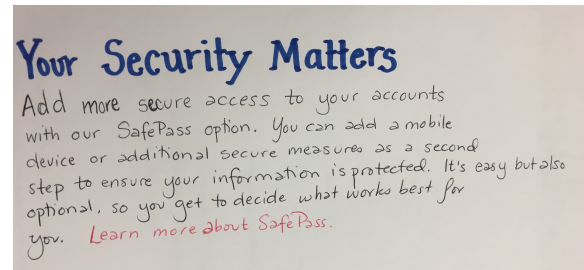 Your Security Matters
Add more secure access to your accounts
with our SafePass option. You can add a mobile
device or additional secure measures as a second
step to ensure your information is protected. It's easy but also
optional, so you get to decide what works best for
you. Learn more about SafePass.